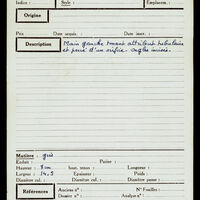 Indice : Style : Emplacem. :
Origine
Prix Date acquis : Durée
Description
Main gauche tenant attribut tubulaire
et percé d'un orifice. Ongles incisés.
Matière : grès
Enduit : Patine :
Hauteur : 8 cm haut. tenon : Longueur :
Largeur : 14,5 Epaisseur :
Diamètre col. : Diamètre panse :
Références
Anciens n° : N° Fouilles :
Dossier n° : Analyse n° :